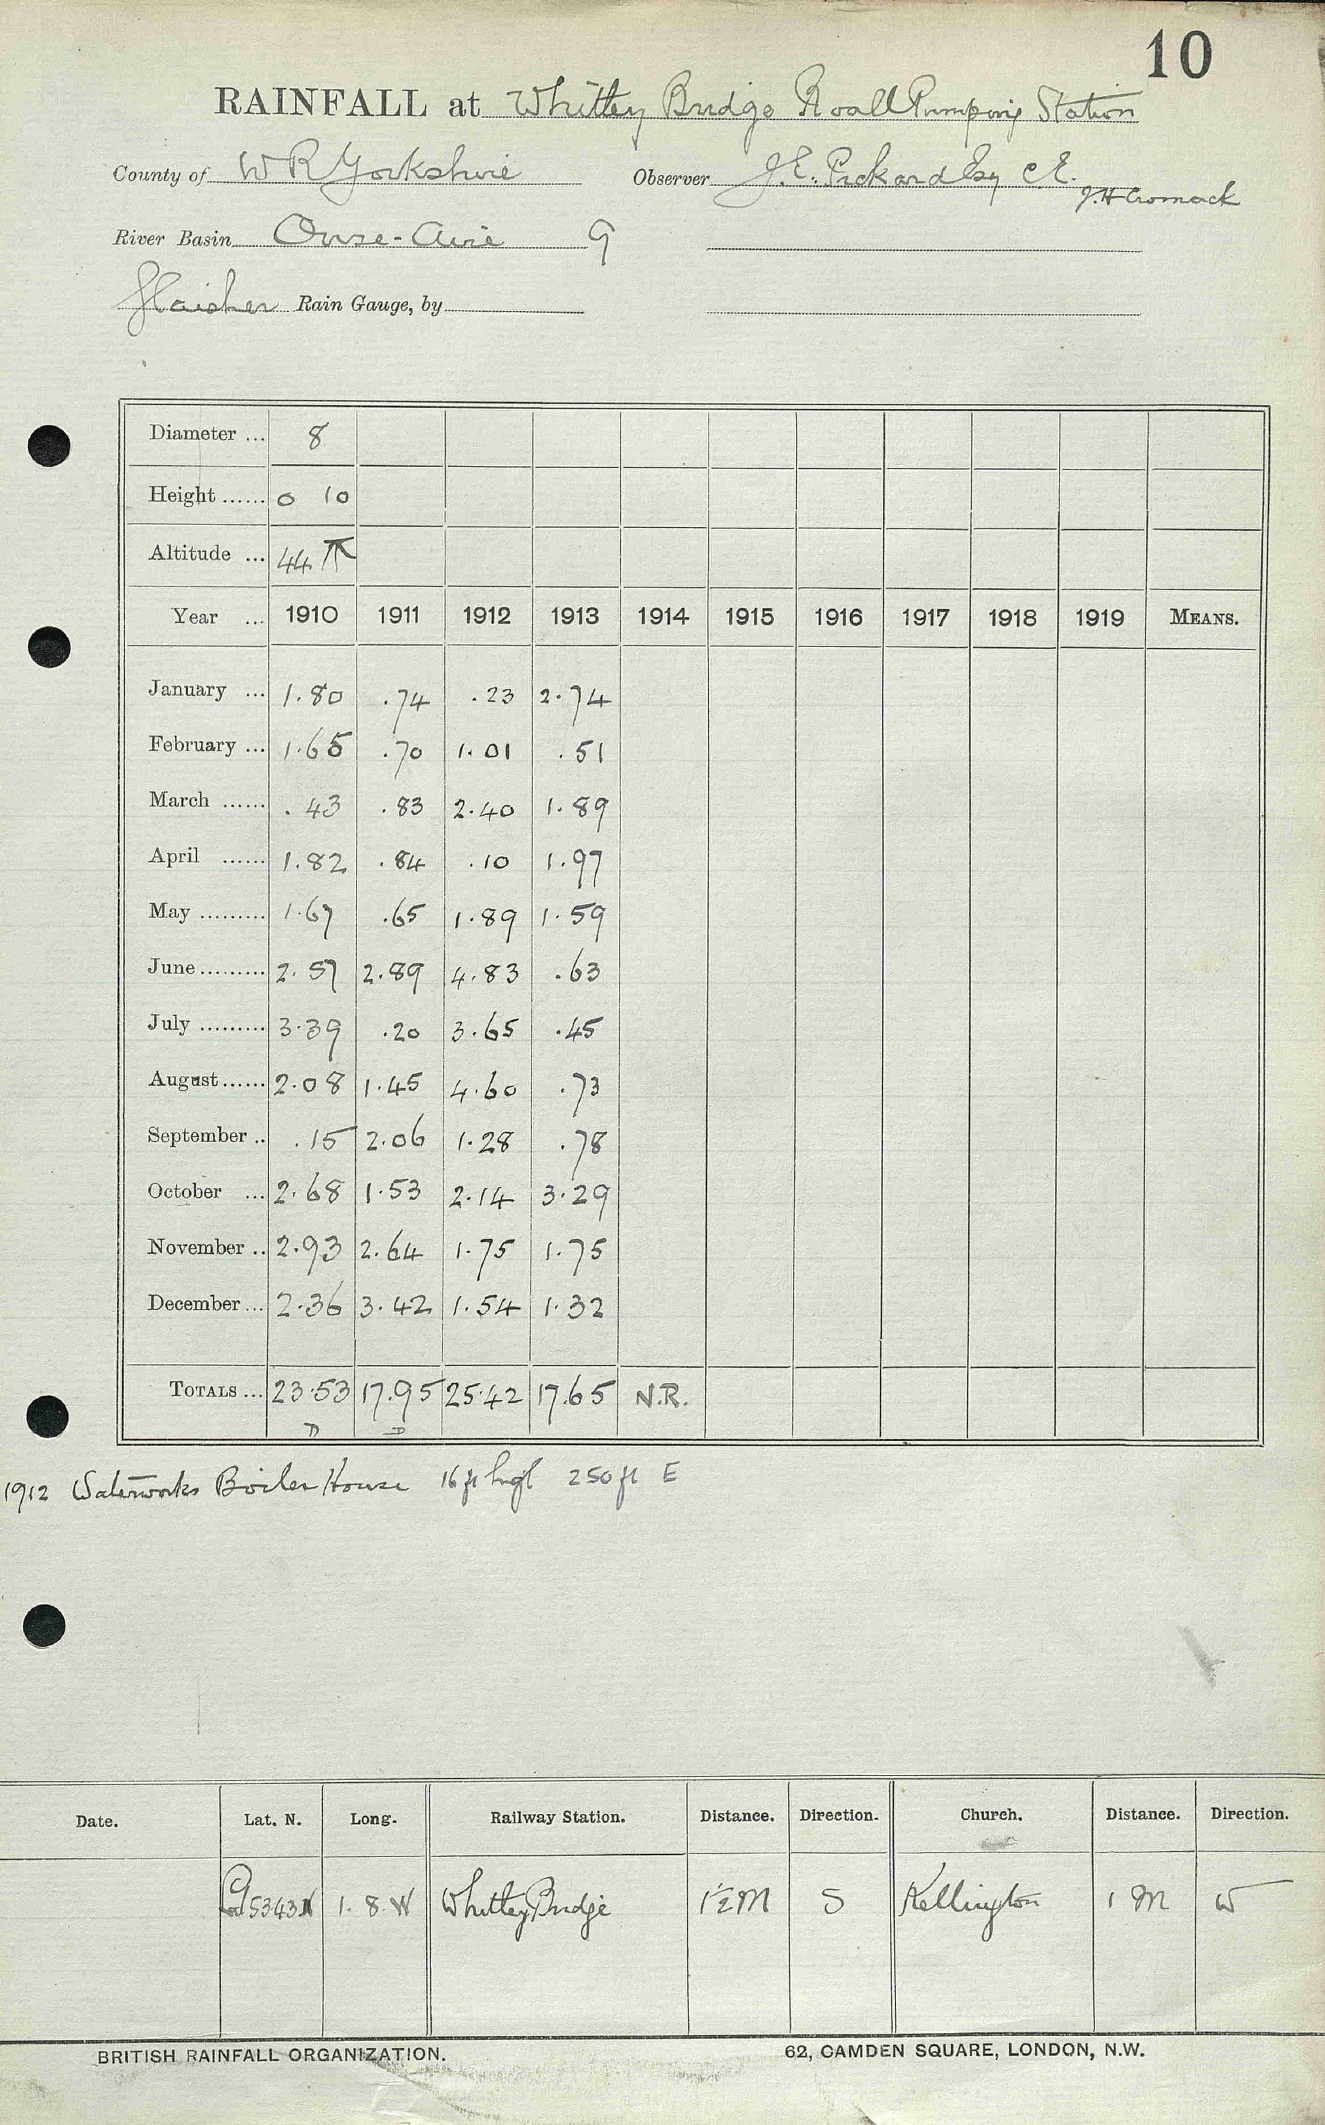 10
RAINFALL at Whitley Bridge Roall Pumping Station
County of W R Yorkshire Observer J. E. Pickard Esq C.E.
J. H Cromack
River Basin Ouse - Aire 9
Glaisher Rain Gauge, by
Diameter ... 8
Height ...... 0 10
Altitude ... 44
Year ... 1910 1911 1912 1913 1914 1915 1916 1917 1918 1919 MEANS.
January ... 1.80 .74 .23 2.74
February ... 1.65 .70 1.01 .51
March ...... .43 .83 2.40 1.89
April ...... 1.82 .84 .10 1.97
May ......... 1.67 .65 1.89 1.59
June ......... 2.57 2.89 4.83 .63
July ......... 3.39 .20 3.65 .45
August ...... 2.08 1.45 4.60 .73
September .. .15 2.06 1.28 .78
October ... 2.68 1.53 2.14 3.29
November .. 2.93 2.64 1.75 1.75
December ... 2.36 3.42 1.54 1.32
TOTALS ... 23.53 17.95 25.42 17.65 N.R.
D D
1912 Waterworks Boiler House 16 ft high 250 ft E
Date. Lat. N. Long. Railway Station. Distance. Direction. Church. Distance. Direction.
53 43 N 1. 8. W Whitley Bridge 1½ M S Kellington 1 M W
BRITISH RAINFALL ORGANIZATION. 62, CAMDEN SQUARE, LONDON, N.W.